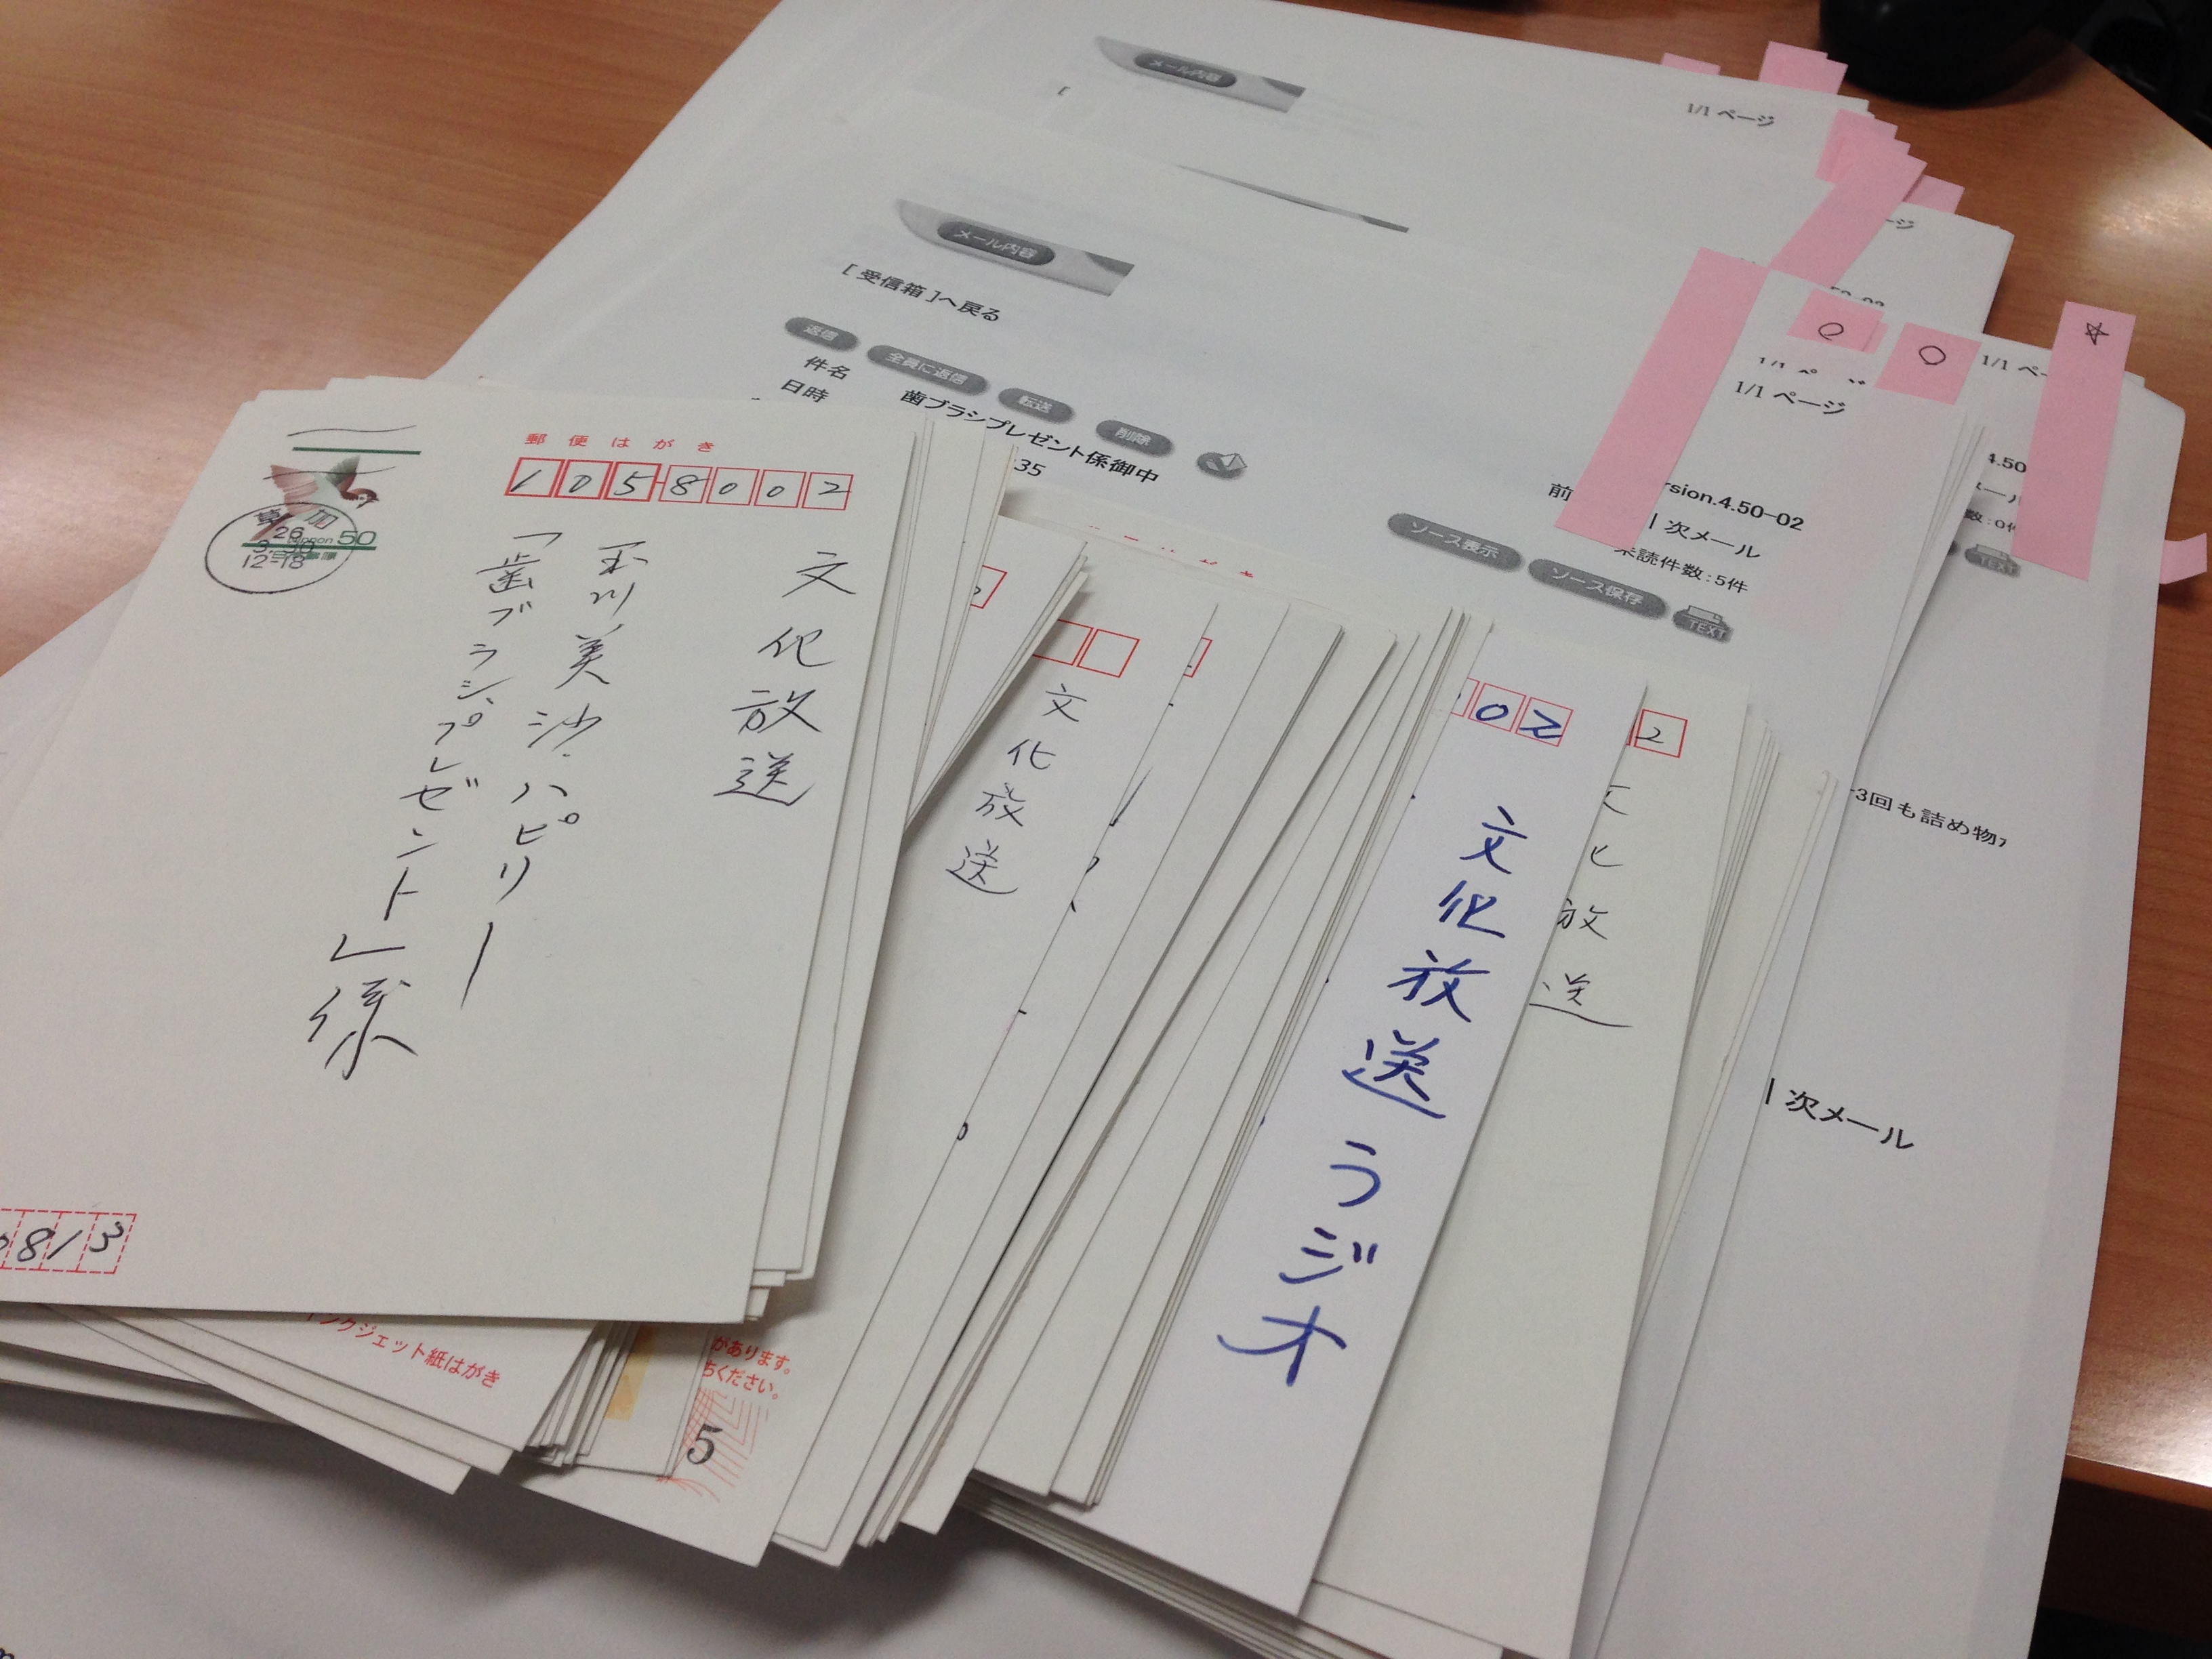 メール内容
1/1 ページ
メール内容
[ 受信箱 ]へ戻る
返信
全員に返信
転送
削除
件名
歯ブラシプレゼント係御中
日時
35
1/1 ページ
rsion.4.50-02
前
| 次メール
未読件数:5件
ソース表示
ソース保存
TEXT
1/1 ペー
4.50
TEXT
3回も詰め物
| 次メール
郵便はがき
1058002
文化放送
玉川美沙ハピリー
「歯ブラシプレゼント」様
草加
26
12-18
50
813
文化放送
02
文化放送ラジオ
2
放送
インクジェット紙はがき
があります。
ください。
5